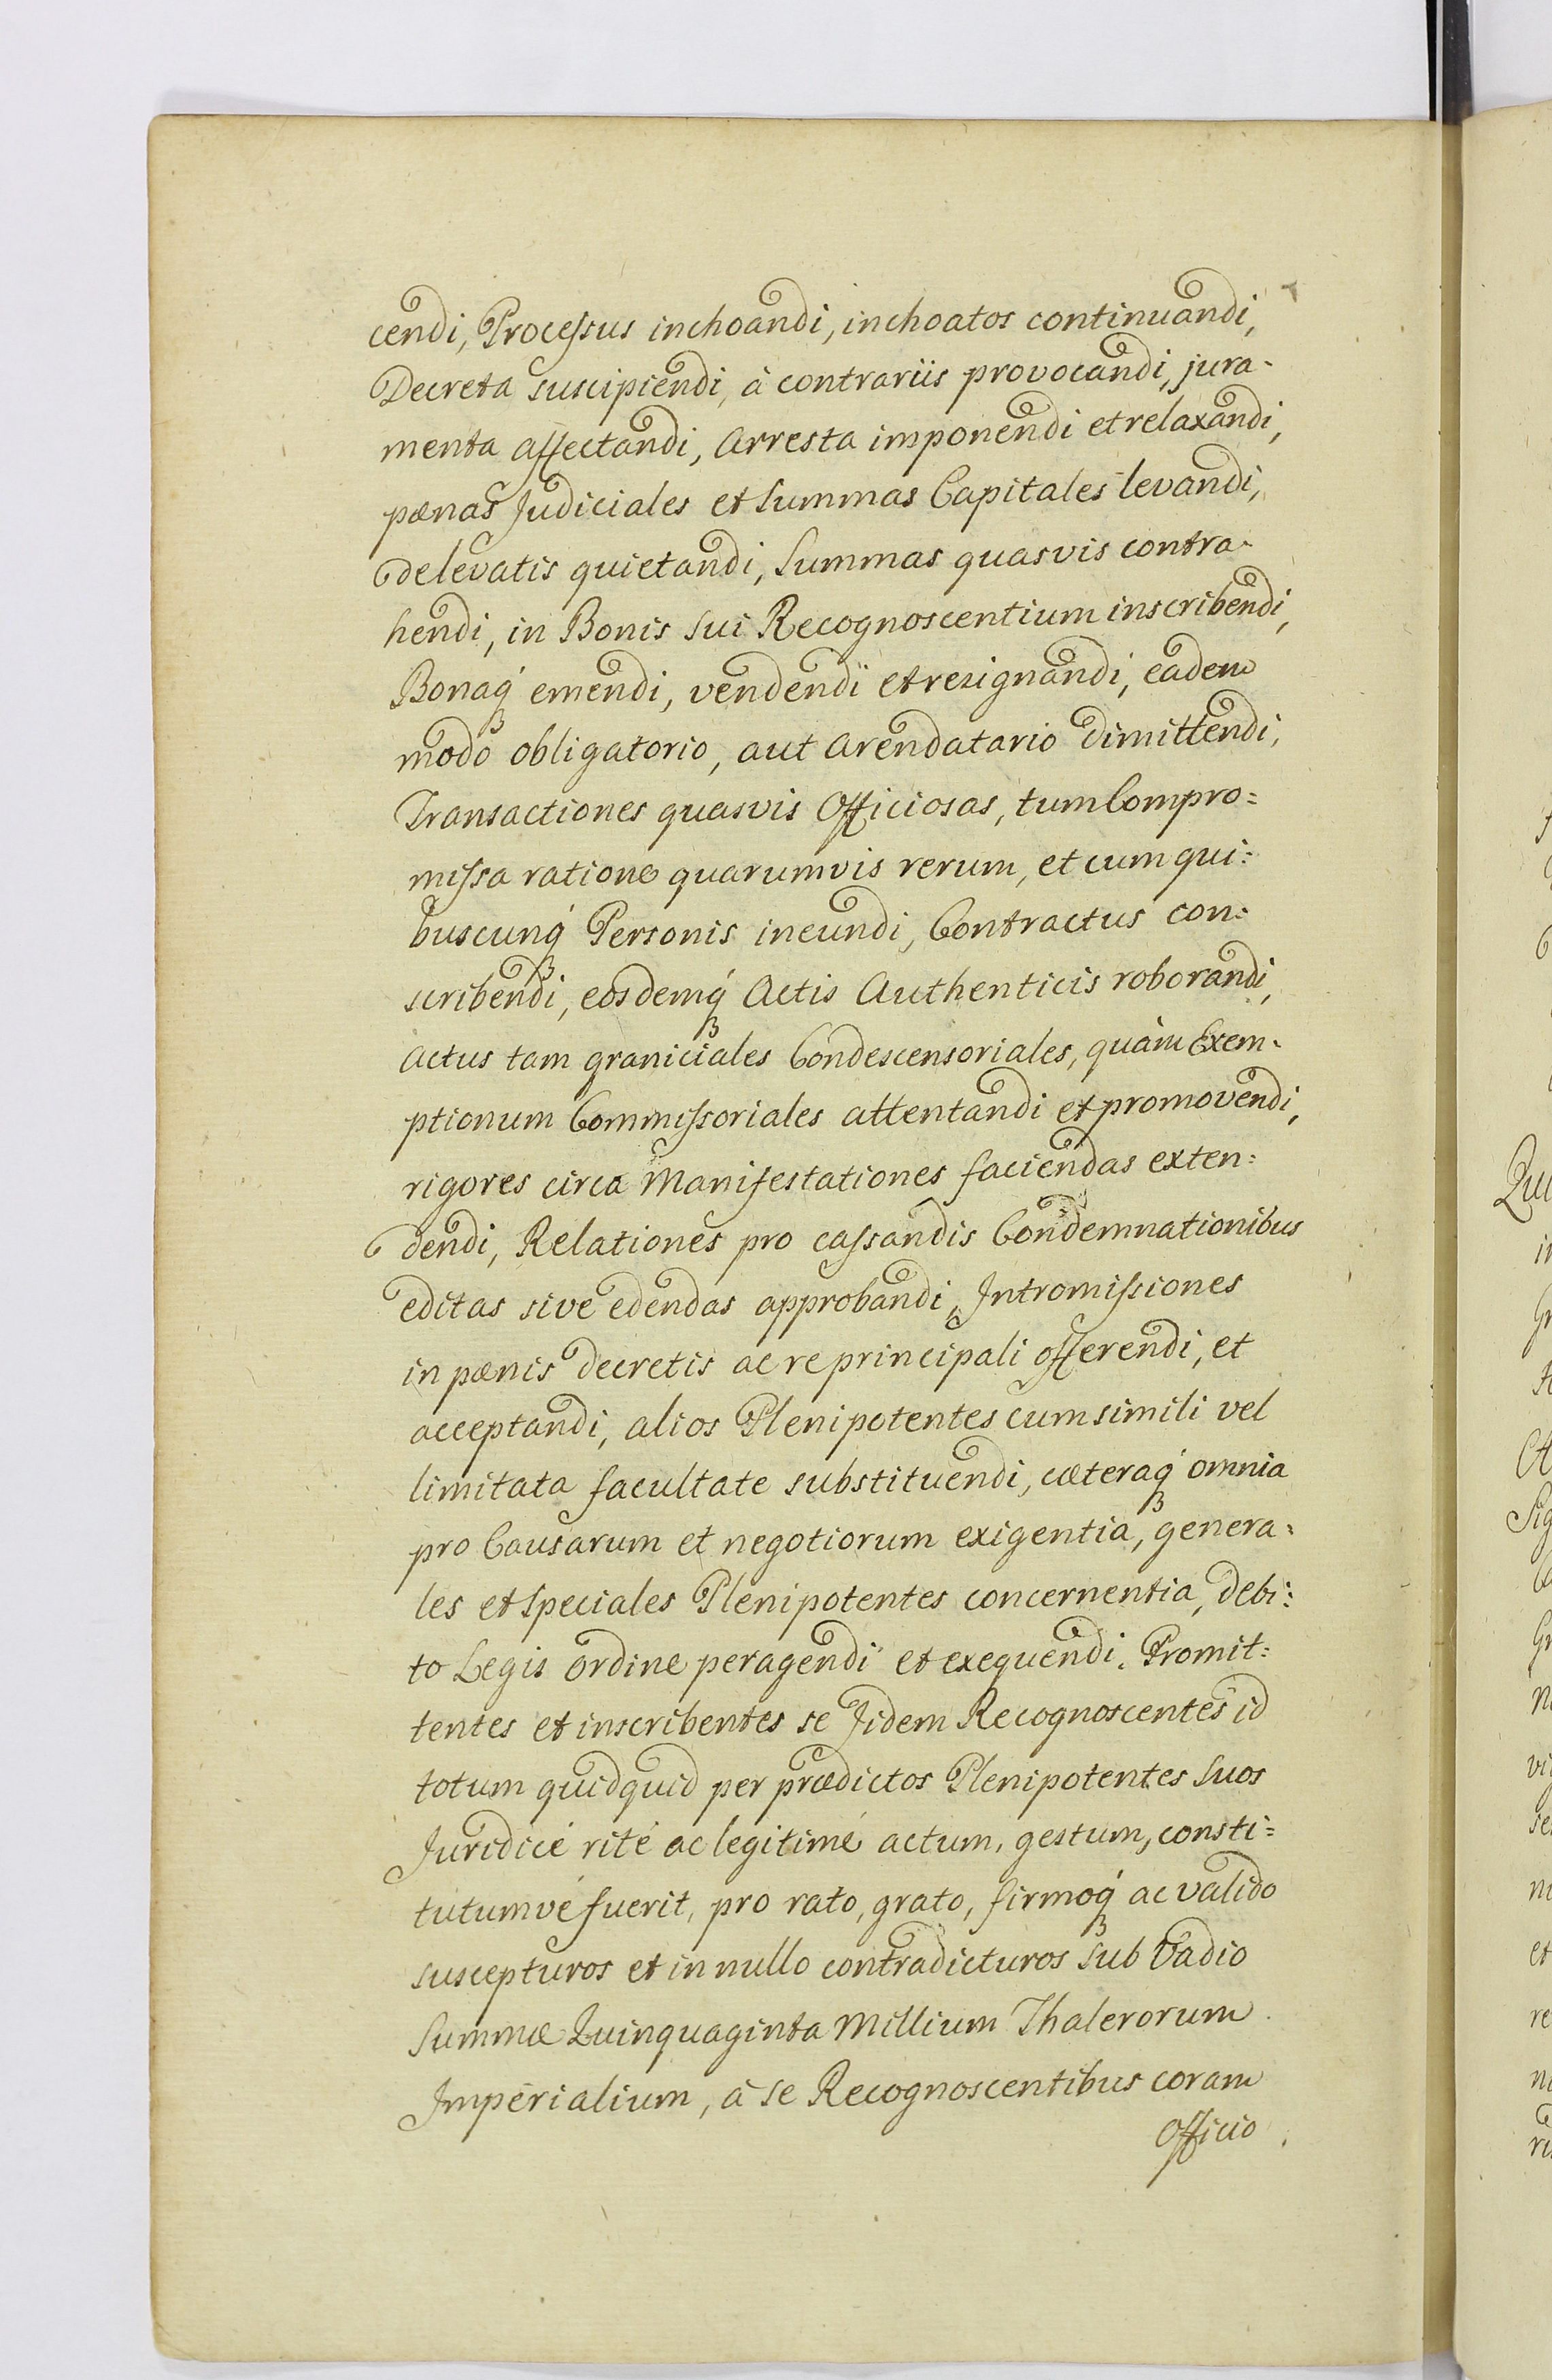 cendi, Processus inchoandi, inchoatos continuandi,
Decreta suscipiendi, à contrariis provocandi, jura-
menta affectandi, Arresta imponendi et relaxandi,
pænas Judiciales et Summas Capitales levandi,
de levatis quietandi, Summas quasvis contra-
hendi, in Bonis sui Recognoscentium inscribendi,
Bonaq́ emendi, vendendi et resignandi, eadem
modo obligatorio, aut arendatario dimittendi,
Transactiones quasvis Officiosas, tum Compro=
missa ratione quarumvis rerum, et cum qui=
buscunq́ Personis ineundi, Contractus con=
scribendi, eosdemq́ Actis Authenticis roborandi,
actus tam graniciales Condescensoriales, quàm Exem-
ptionum Commissoriales attentandi et promovendi,
rigores circa Manifestationes faciendas exten=
dendi, Relationes pro cassandis Condemnationibus
editas sive edendas approbandi, Intromissiones
in pænis decretis ac re principali offerendi, et
acceptandi, alios Plenipotentes cum simili vel
limitata facultate substituendi, cæteraq́ omnia
pro Causarum et negotiorum exigentia, genera=
les et speciales Plenipotentes concernentia, debi=
to Legis ordine peragendi et exequendi. Promit=
tentes et inscribentes se Jidem Recognoscentes id
totum quidquid per prædictos Plenipotentes suos
Juridicé rité ac legitimé actum, gestum, consti=
tutumvé fuerit, pro rato, grato, firmoq́ ac valido
suscepturos et in nullo contradicturos sub Vadio
Summæ Quinquaginta Millium Thalerorum
Imperialium, à se Recognoscentibus coram
Officio